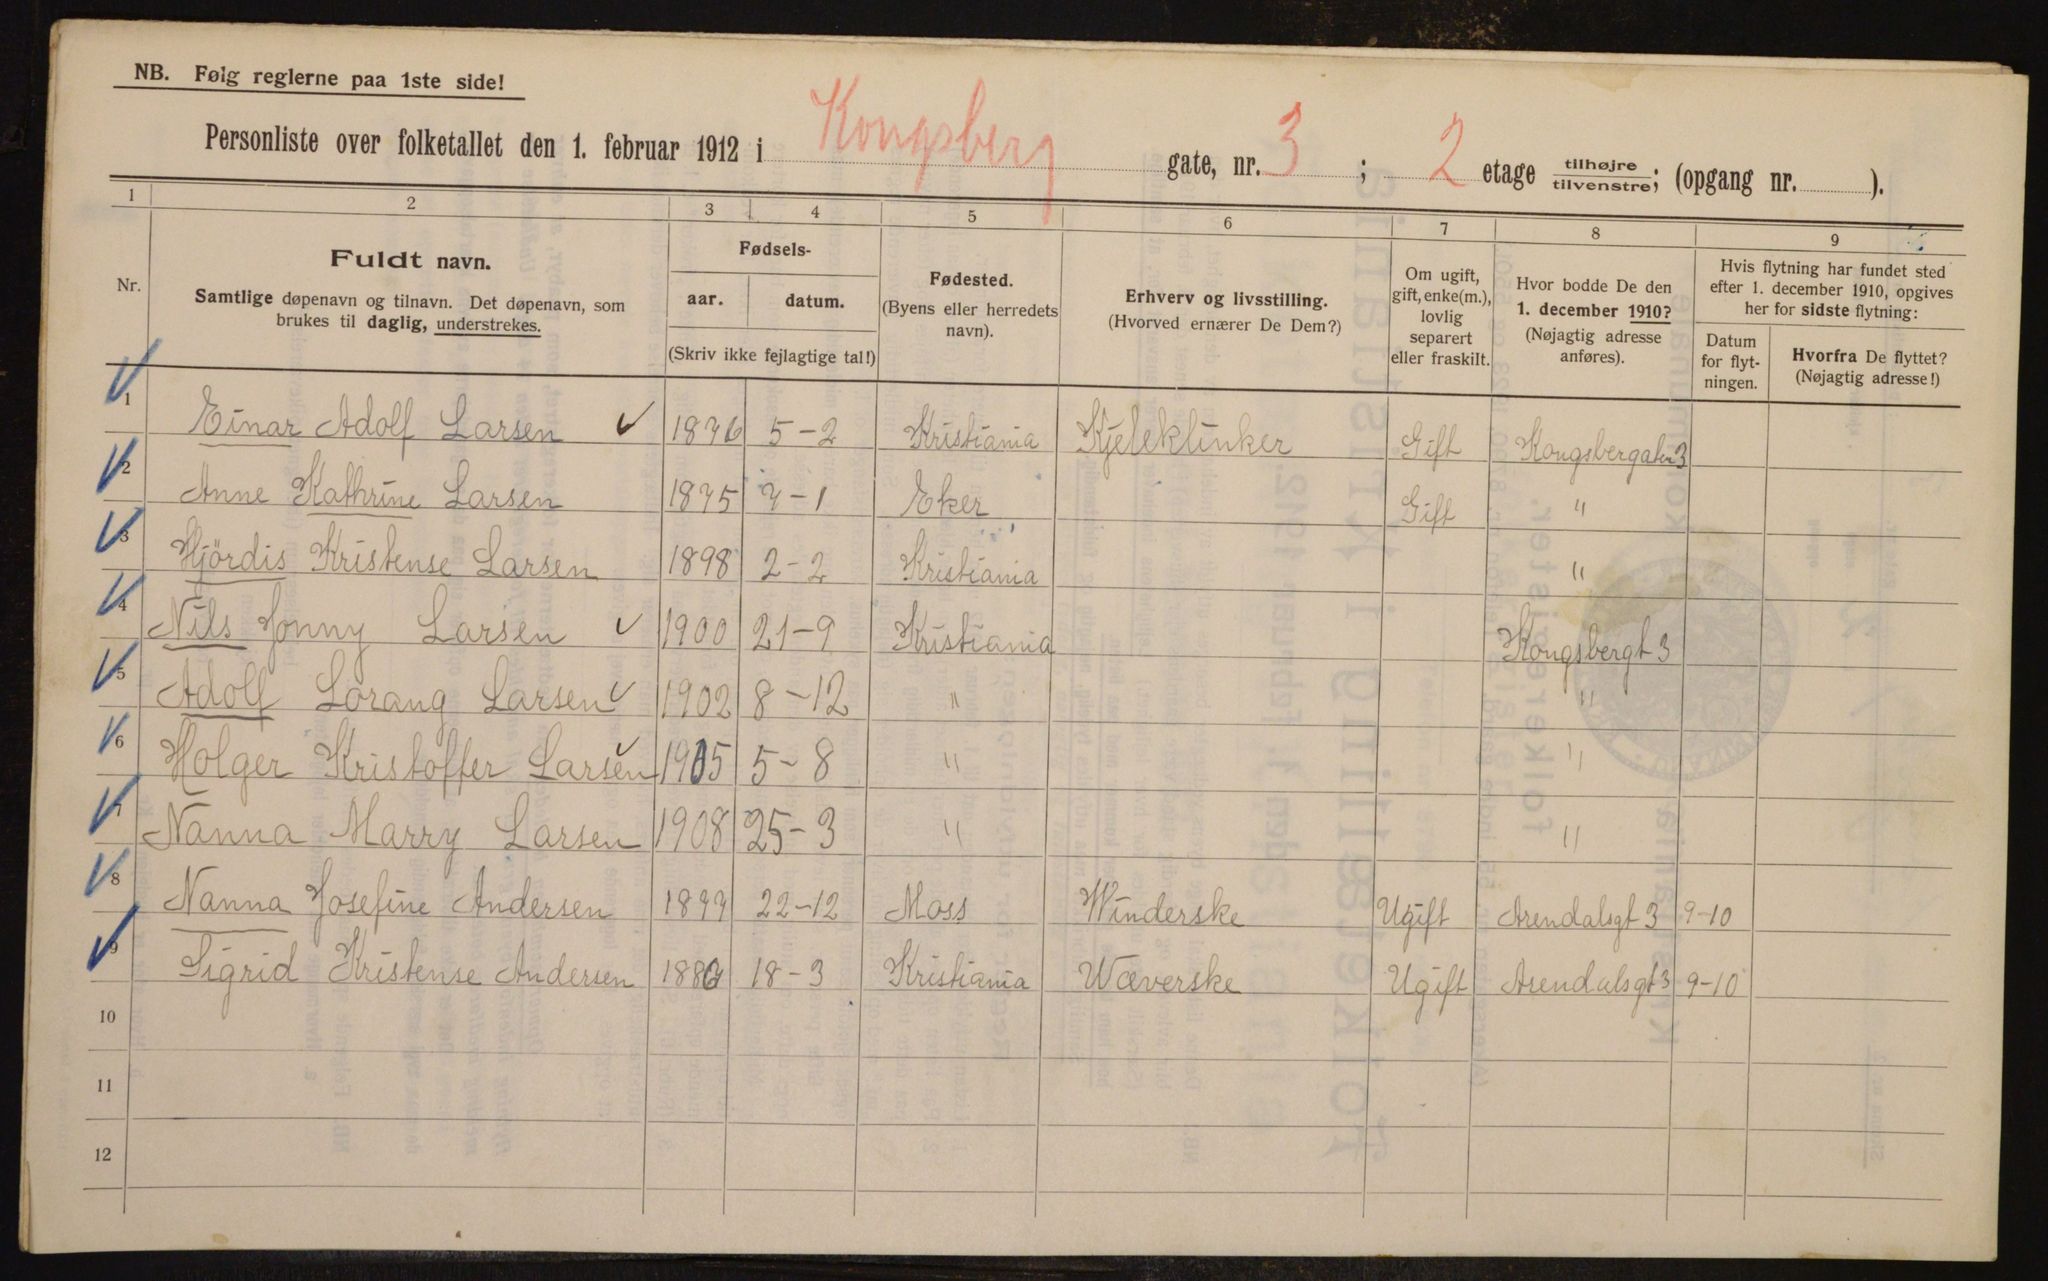 NB. Følg reglerne paa 1ste side!
Personliste over folketallet den 1. februar 1912 i Kongsberg gate, nr. 3 ; 2 etage tilhøjre/tilvenstre; (opgang nr. ).
1 2 3 4 5 6 7 8 9
Nr.
Fuldt navn.
Samtlige døpenavn og tilnavn. Det døpenavn, som
brukes til daglig, understrekes.
Fødsels-
aar. datum.
(Skriv ikke fejlagtige tal!)
Fødested.
(Byens eller herredets
navn).
Erhverv og livsstilling.
(Hvorved ernærer De Dem?)
Om ugift,
gift, enke(m.),
lovlig
separert
eller fraskilt.
Hvor bodde De den
1. december 1910?
(Nøjagtig adresse
anføres).
Hvis flytning har fundet sted
efter 1. december 1910, opgives
her for sidste flytning:
Datum
for flyt-
ningen.
Hvorfra De flyttet?
(Nøjagtig adresse!)
1 Einar Adolf Larsen 1876 5-2 Kristiania Kjeleklinker Gift Kongsbergaten 3
2 Anne Kathrine Larsen 1875 7-1 Eker Gift "
3 Hjördis Kristense Larsen 1898 2-2 Kristiania "
4 Nils Jonny Larsen 1900 21-9 Kristiania Kongsbergt 3
5 Adolf Lorang Larsen 1902 8-12 " "
6 Holger Kristoffer Larsen 1905 5-8 " "
7 Nanna Marry Larsen 1908 25-3 " "
8 Nanna Josefine Andersen 22-12 Moss Winderske Ugift Arendalsgt 3 9-10
9 Sigrid Kristense Andersen 1886 18-3 Kristiania Wæverske Ugift Arendalsgt 3 9-10
10
11
12